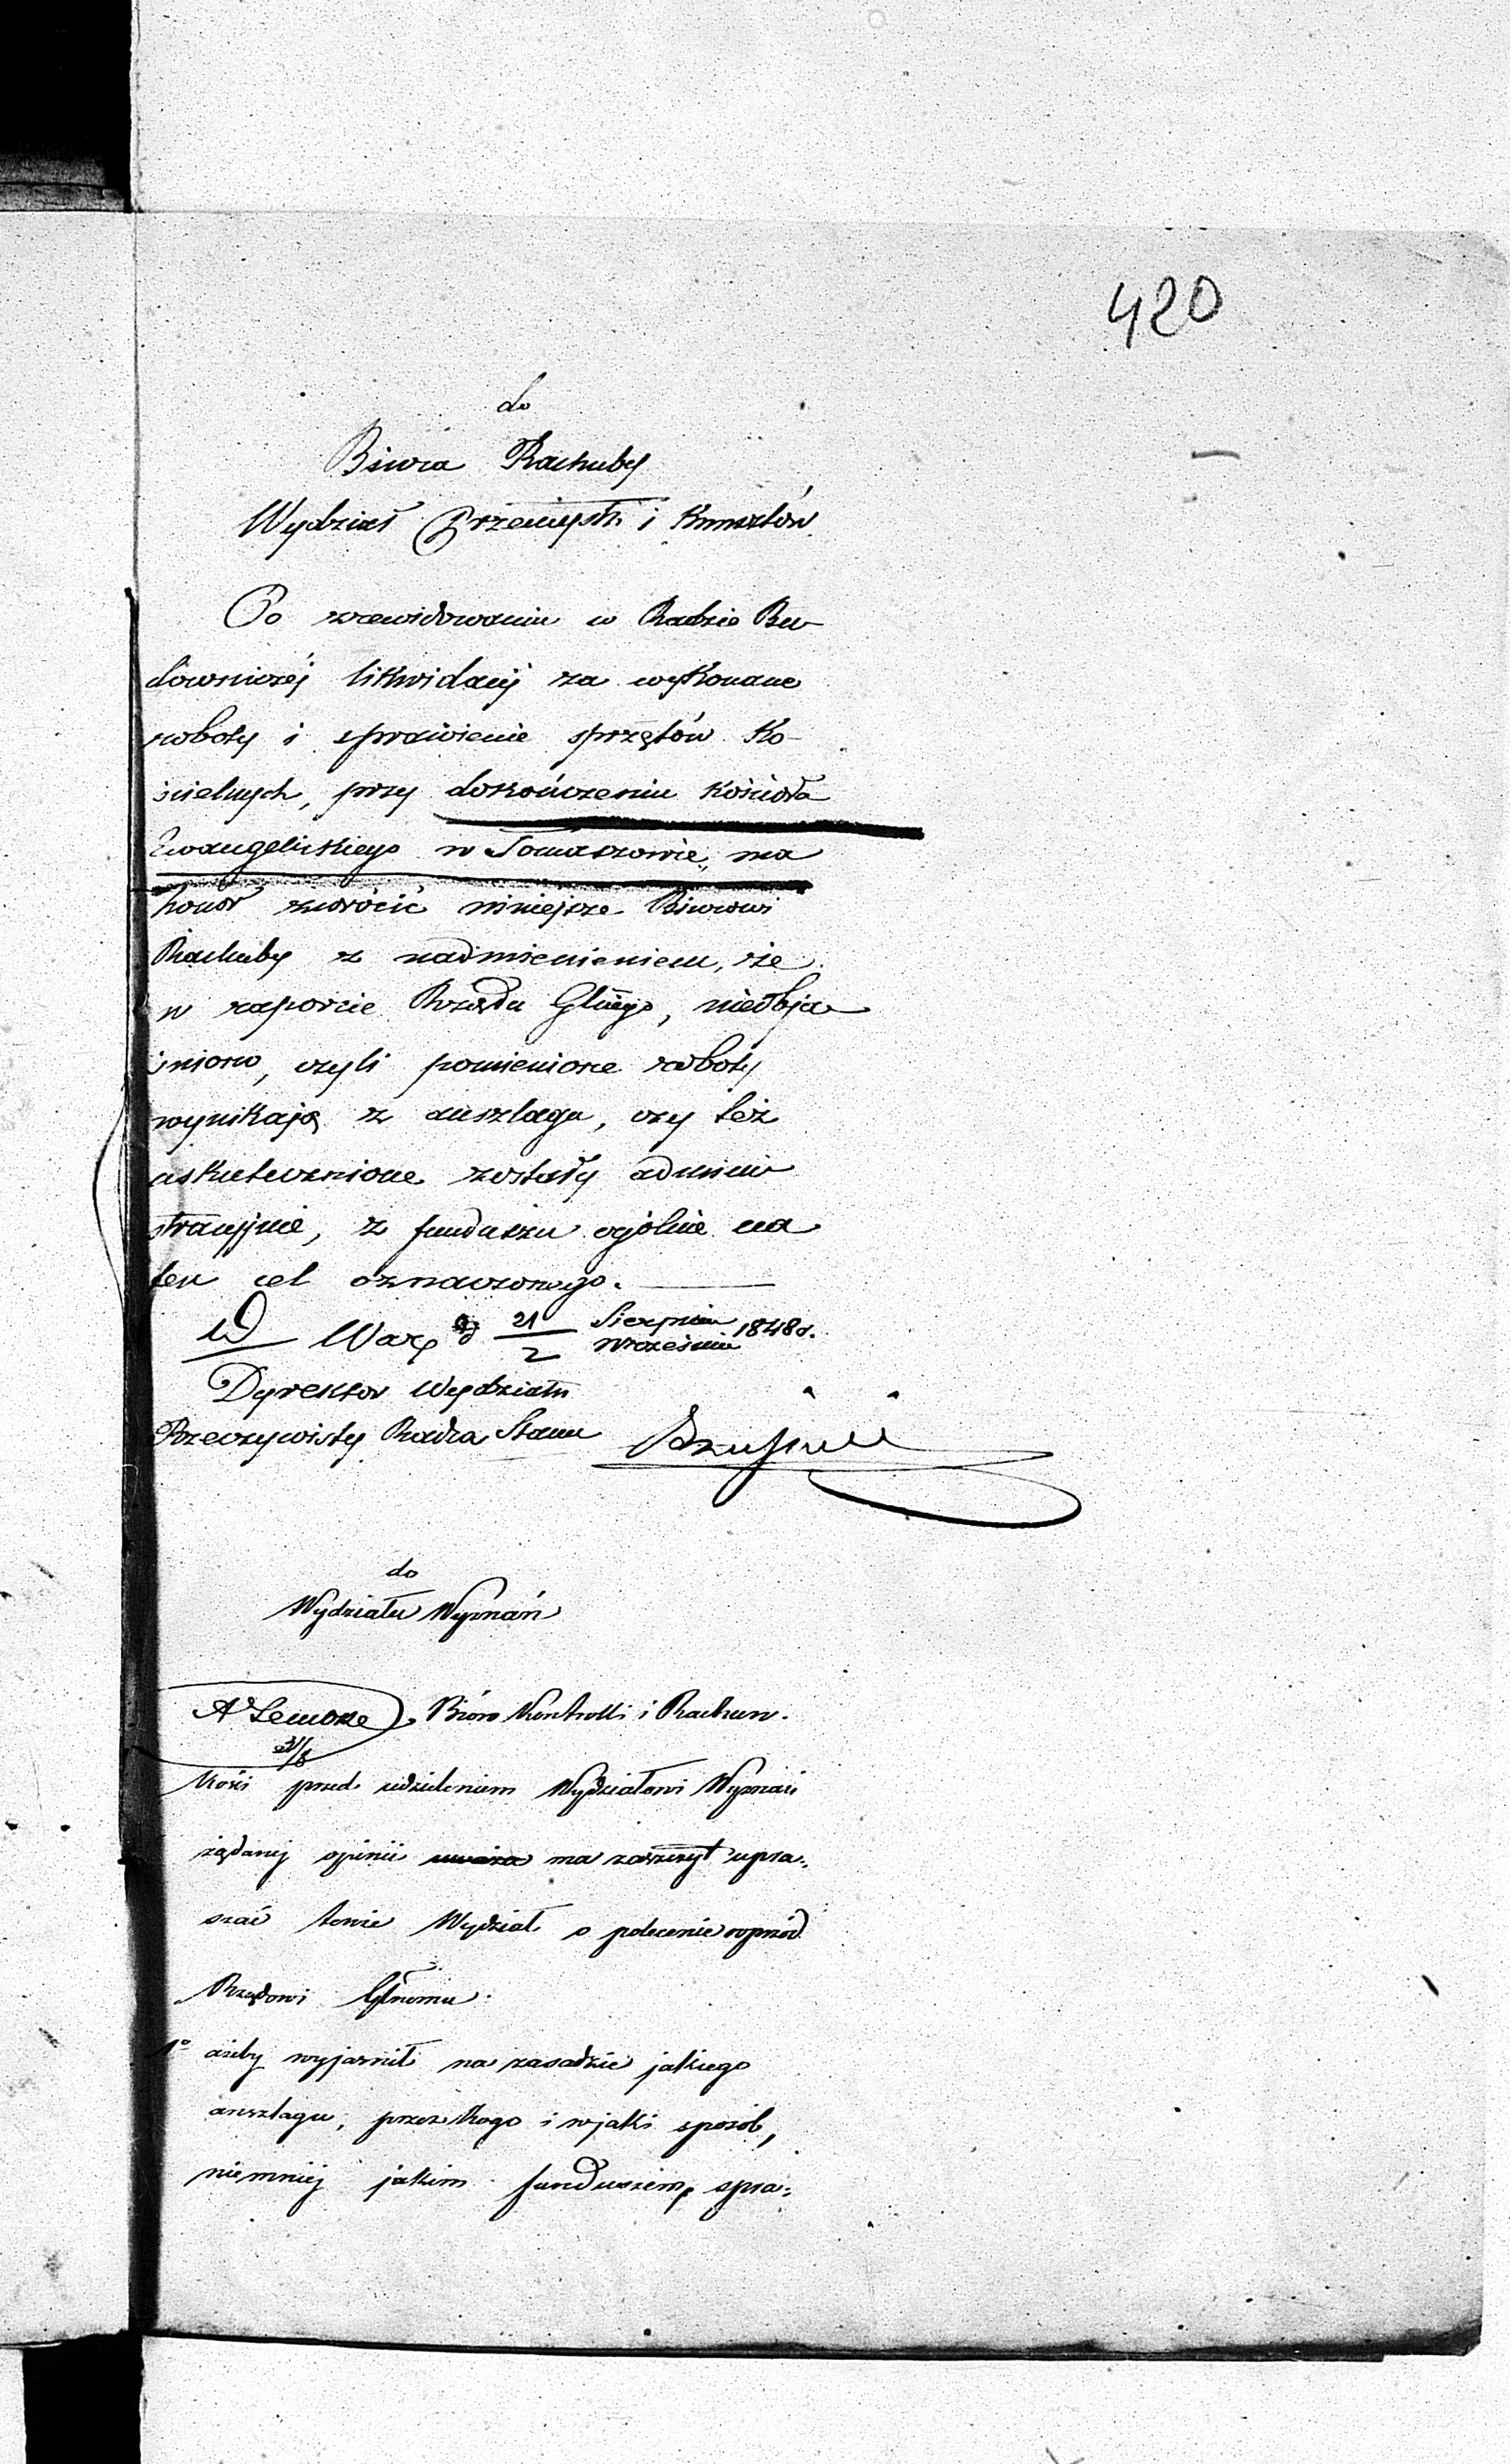 420
do
Biura Rachuby
Wydział Przemysłu i Kunsztów
Po zrewidowaniu w Radzie Bu-
downiczéj likwidacyj za wykonane
roboty i sprawienie sprzętów Ko-
ścielnych, przy dokończeniu Kościoła
Ewangelickiego w Tomaszowie, ma
honor zwrócić niniejsze Biurowi
Rachuby z nadmienieniem, że
w raporcie Rządu Głnego, nieobja
śniono, czyli pomienione roboty
wynikają z anszlagu, czy też
uskutecznione zostały admini
stracyjnie, z funduszu ogólnie na
ten cel oznaczonego.
w Warz d 21/2 Sierpnia/Września 1848 r.
Dyrektor Wydziału
Rzeczywisty Radca Stanu
do
Wydziału Wyznań
Bióro Kontrolli i Rachun.
kości przed udzieleniem Wydziałowi Wyznań
żądanej opinii ma zaszczyt upra-
szać tenże Wydział o polecenie wprzód
Rządowi Głnemu.
1o ażeby wyjaśnił na zasadzie jakiego
anszlagu, przez kogo i wjaki sposób,
niemniej jakim funduszem, spra-